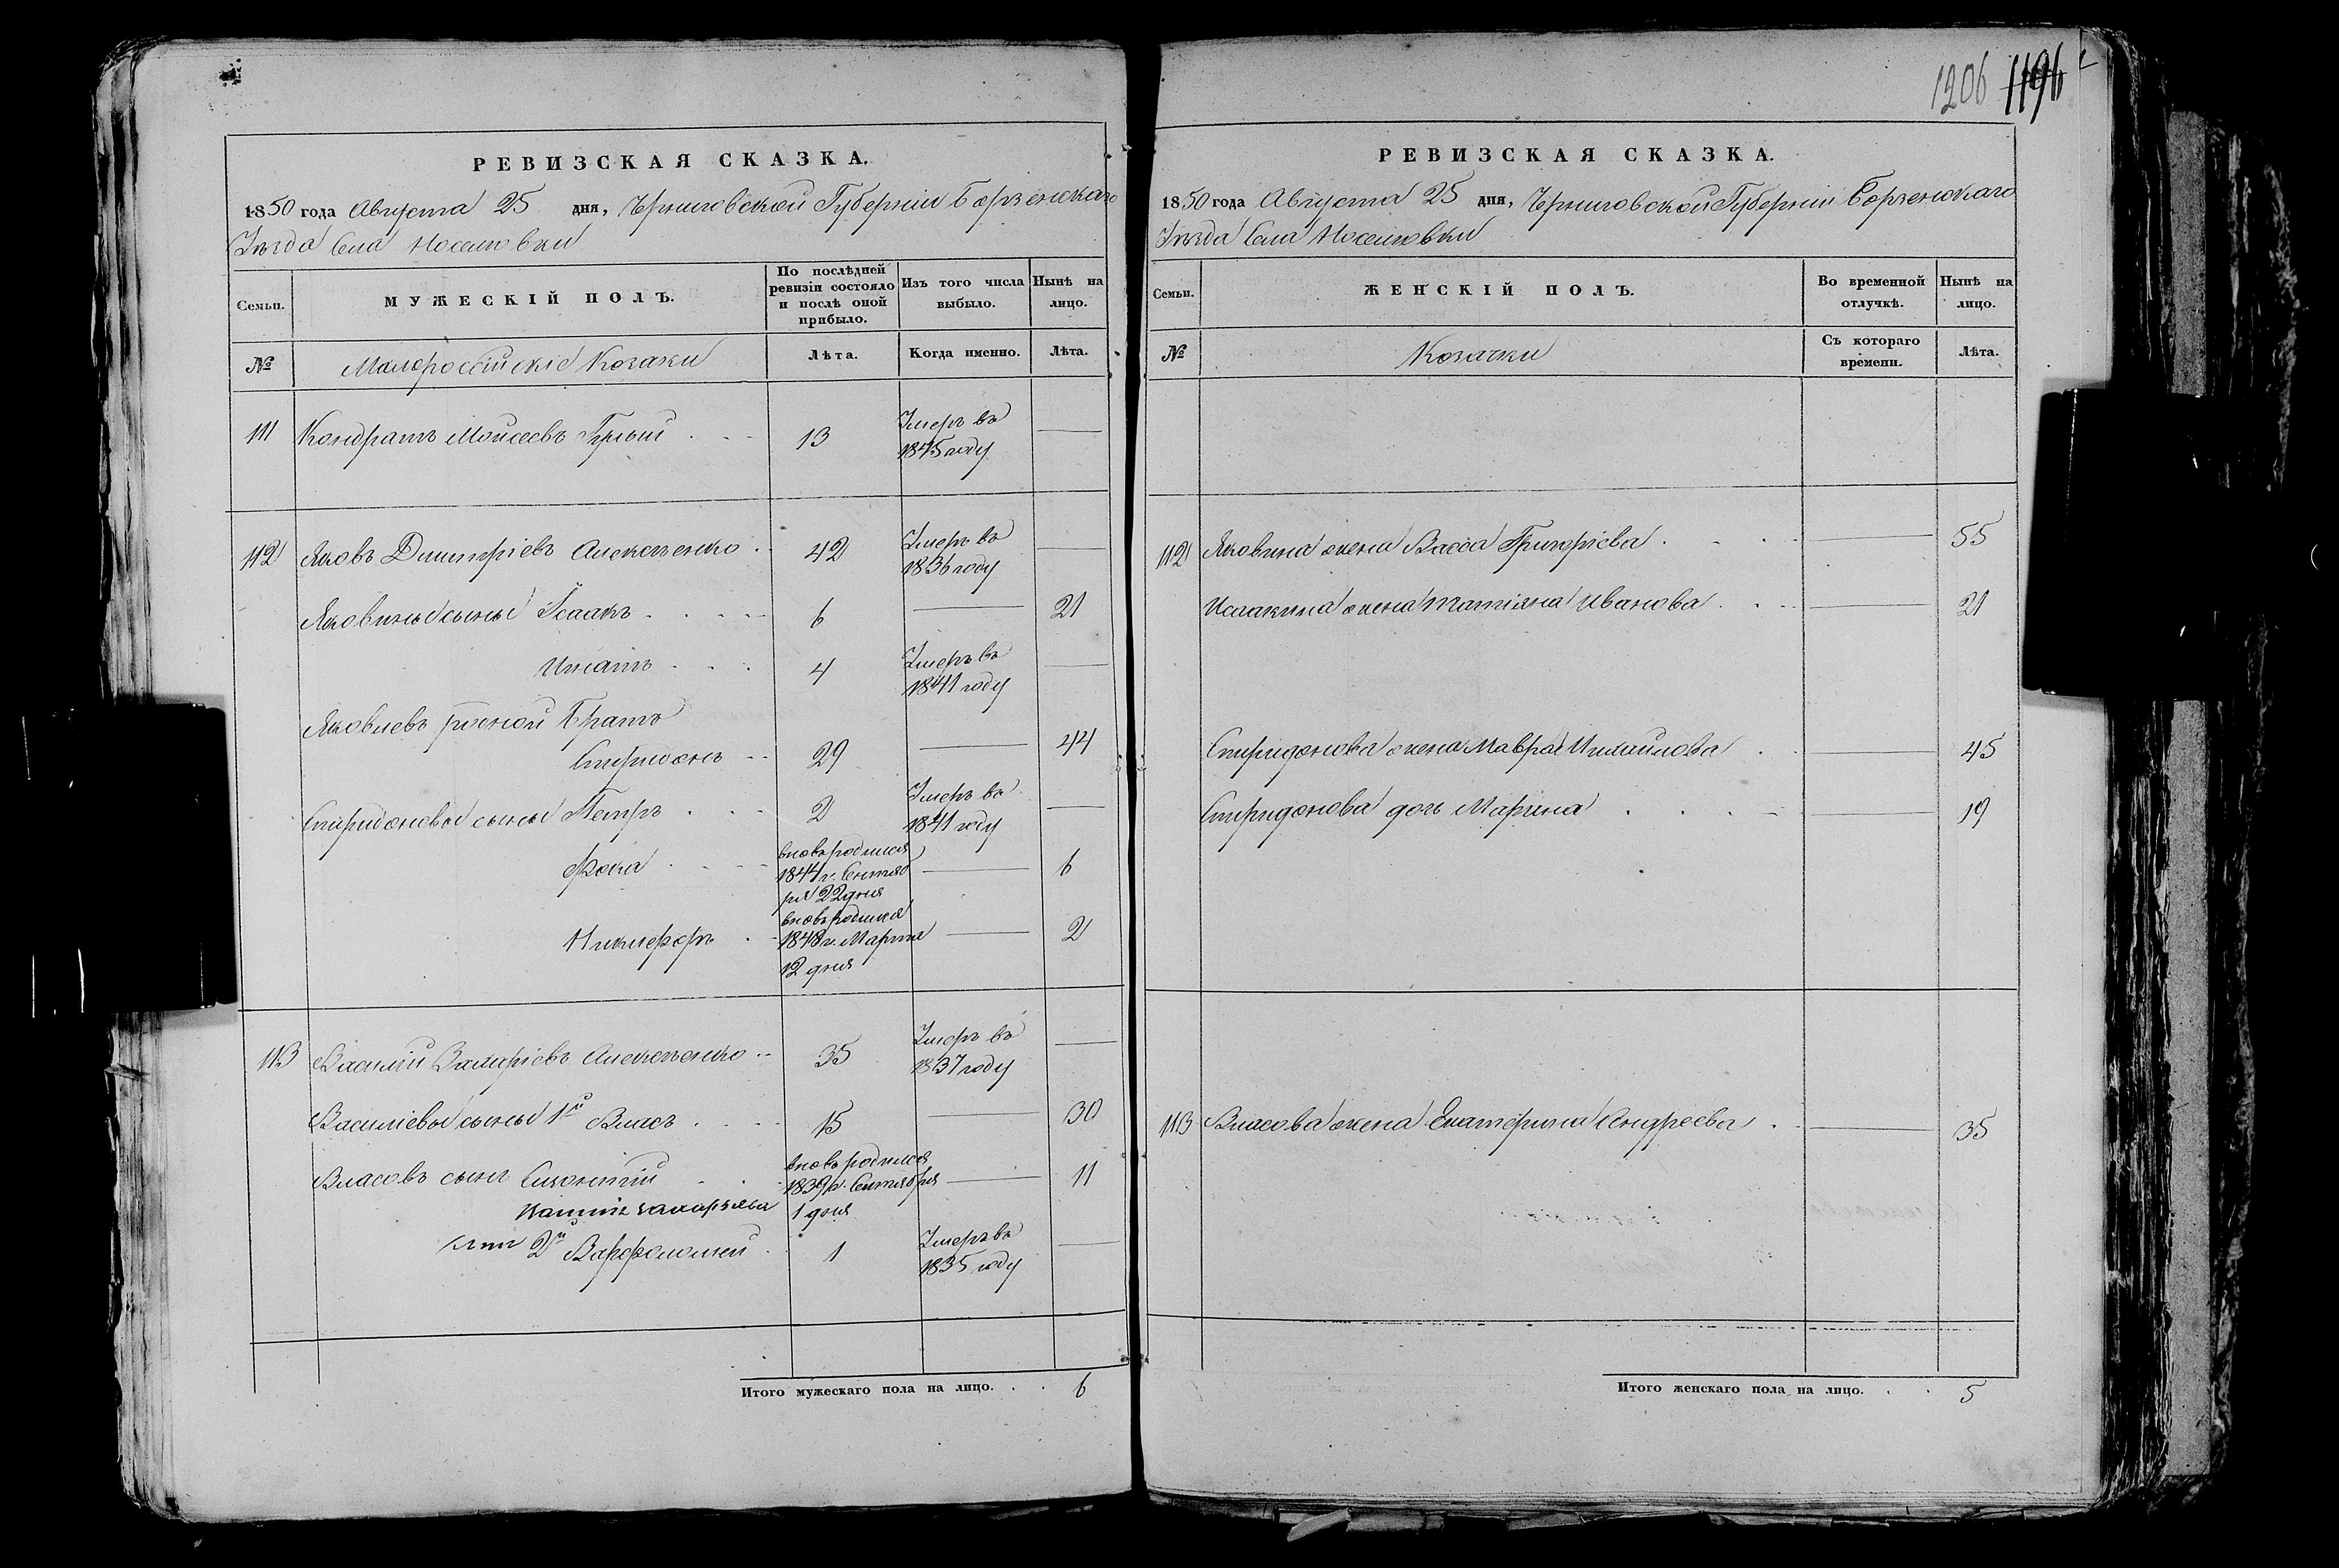 1206 1196
РЕВИЗСКАЯ СКАЗКА.
1850 года Августа 25 дня, Черниговской Губерніи Борзенскаго
Уѣзда Села Носеловки
Семьи.
МУЖЕСКІЙ ПОЛЪ.
По послѣдней ревизіи состояло и послѣ оной прибыло.
Изъ того числа выбыло.
Нынѣ на лицо.
№
Малороссійскіе Козаки
Лѣта.
Когда именно.
Лѣта.
111 Кондратъ Моисеевъ 13 Умеръ въ
1845 году
112 Яковъ Димитріевъ Алексѣенко 42 Умеръ въ
1836 году
Яковины сыны Ісаакъ 6 21
Игнатъ 4 Умеръ въ
1841 году
Яковлевъ родной братъ
Спиридонъ 29 44
Спиридоновы сыны Петръ 2 Умеръ въ
1841 году
Фока вновь родился 6
1844 г. Сентяб
ря 22 дня
Никифоръ вновь родился 2
1848 г. Марта
12 дня
113 Василій Алексѣенко 35 Умеръ въ
1837 году
Василіевы сыны 1й Власъ 15 30
Власовъ сынъ вновь родился 11
1839 г. Сентября
1 дня
2й Варфоломей 1 Умеръ въ
1835 году
Итого мужескаго пола на лицо. 6
РЕВИЗСКАЯ СКАЗКА.
1850 года Августа 25 дня, Черниговской Губерніи Борзенскаго
Уѣзда Села Носеловки
Семьи.
ЖЕНСКІЙ ПОЛЪ.
Во временной отлучкѣ.
Нынѣ на лицо.
№
Козачки
Съ котораго времени.
Лѣта.
112 Яковина жена Васса Григоріева 55
Исаакина жена Татіяна Иванова 21
Спиридонова жена Мавра Михайлова 45
Спиридонова дочь Марина 19
113 Власова жена Екатерина Андреева 35
Итого женскаго пола на лицо. 5